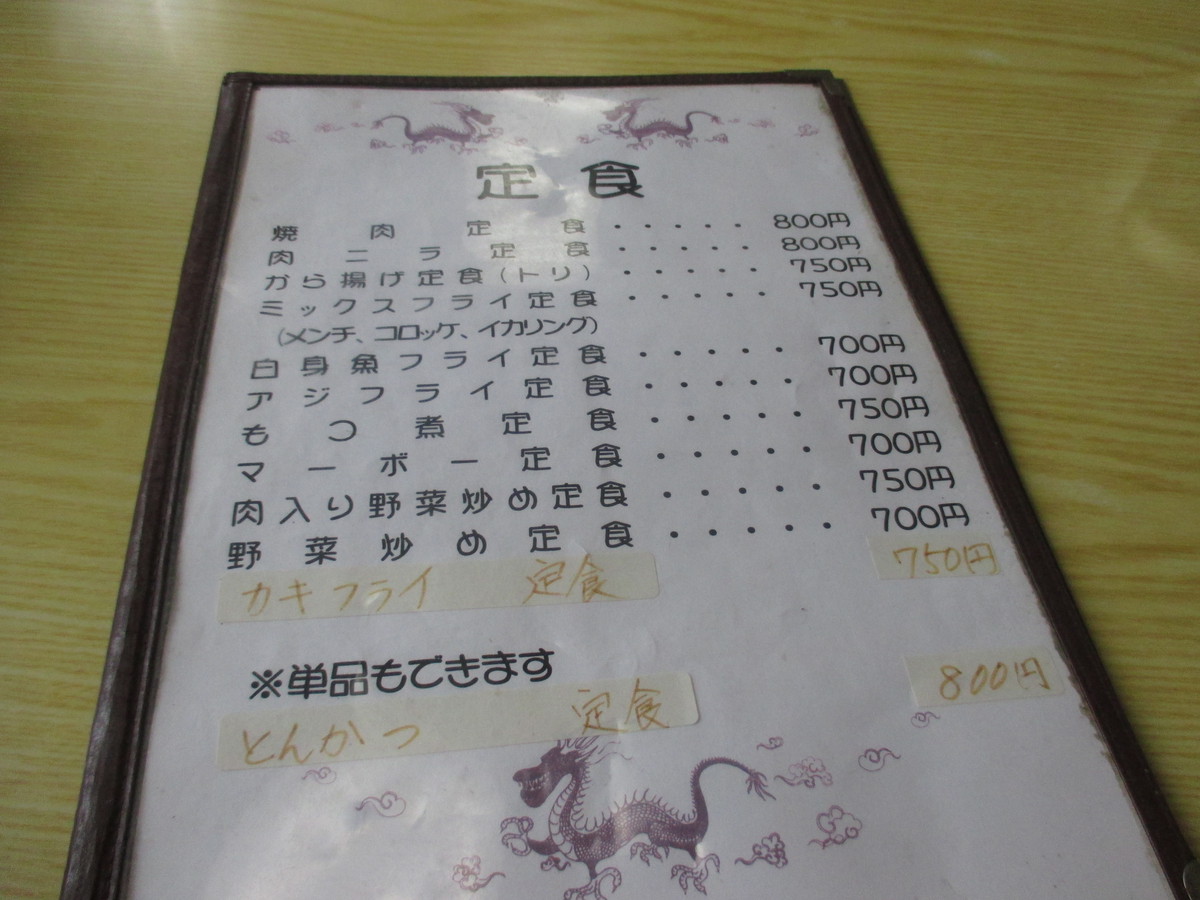 定食
焼肉定食・・・・・800円
肉ニラ定食・・・・・800円
から揚げ定食(トリ)・・・・・750円
ミックスフライ定食・・・・・750円
(メンチ、コロッケ、イカリング)
白身魚フライ定食・・・・・700円
アジフライ定食・・・・・700円
もつ煮定食・・・・・750円
マーボー定食・・・・・700円
肉入り野菜炒め定食・・・・・750円
野菜炒め定食・・・・・700円
カキフライ 定食 750円
※単品もできます
とんかつ 定食 800円